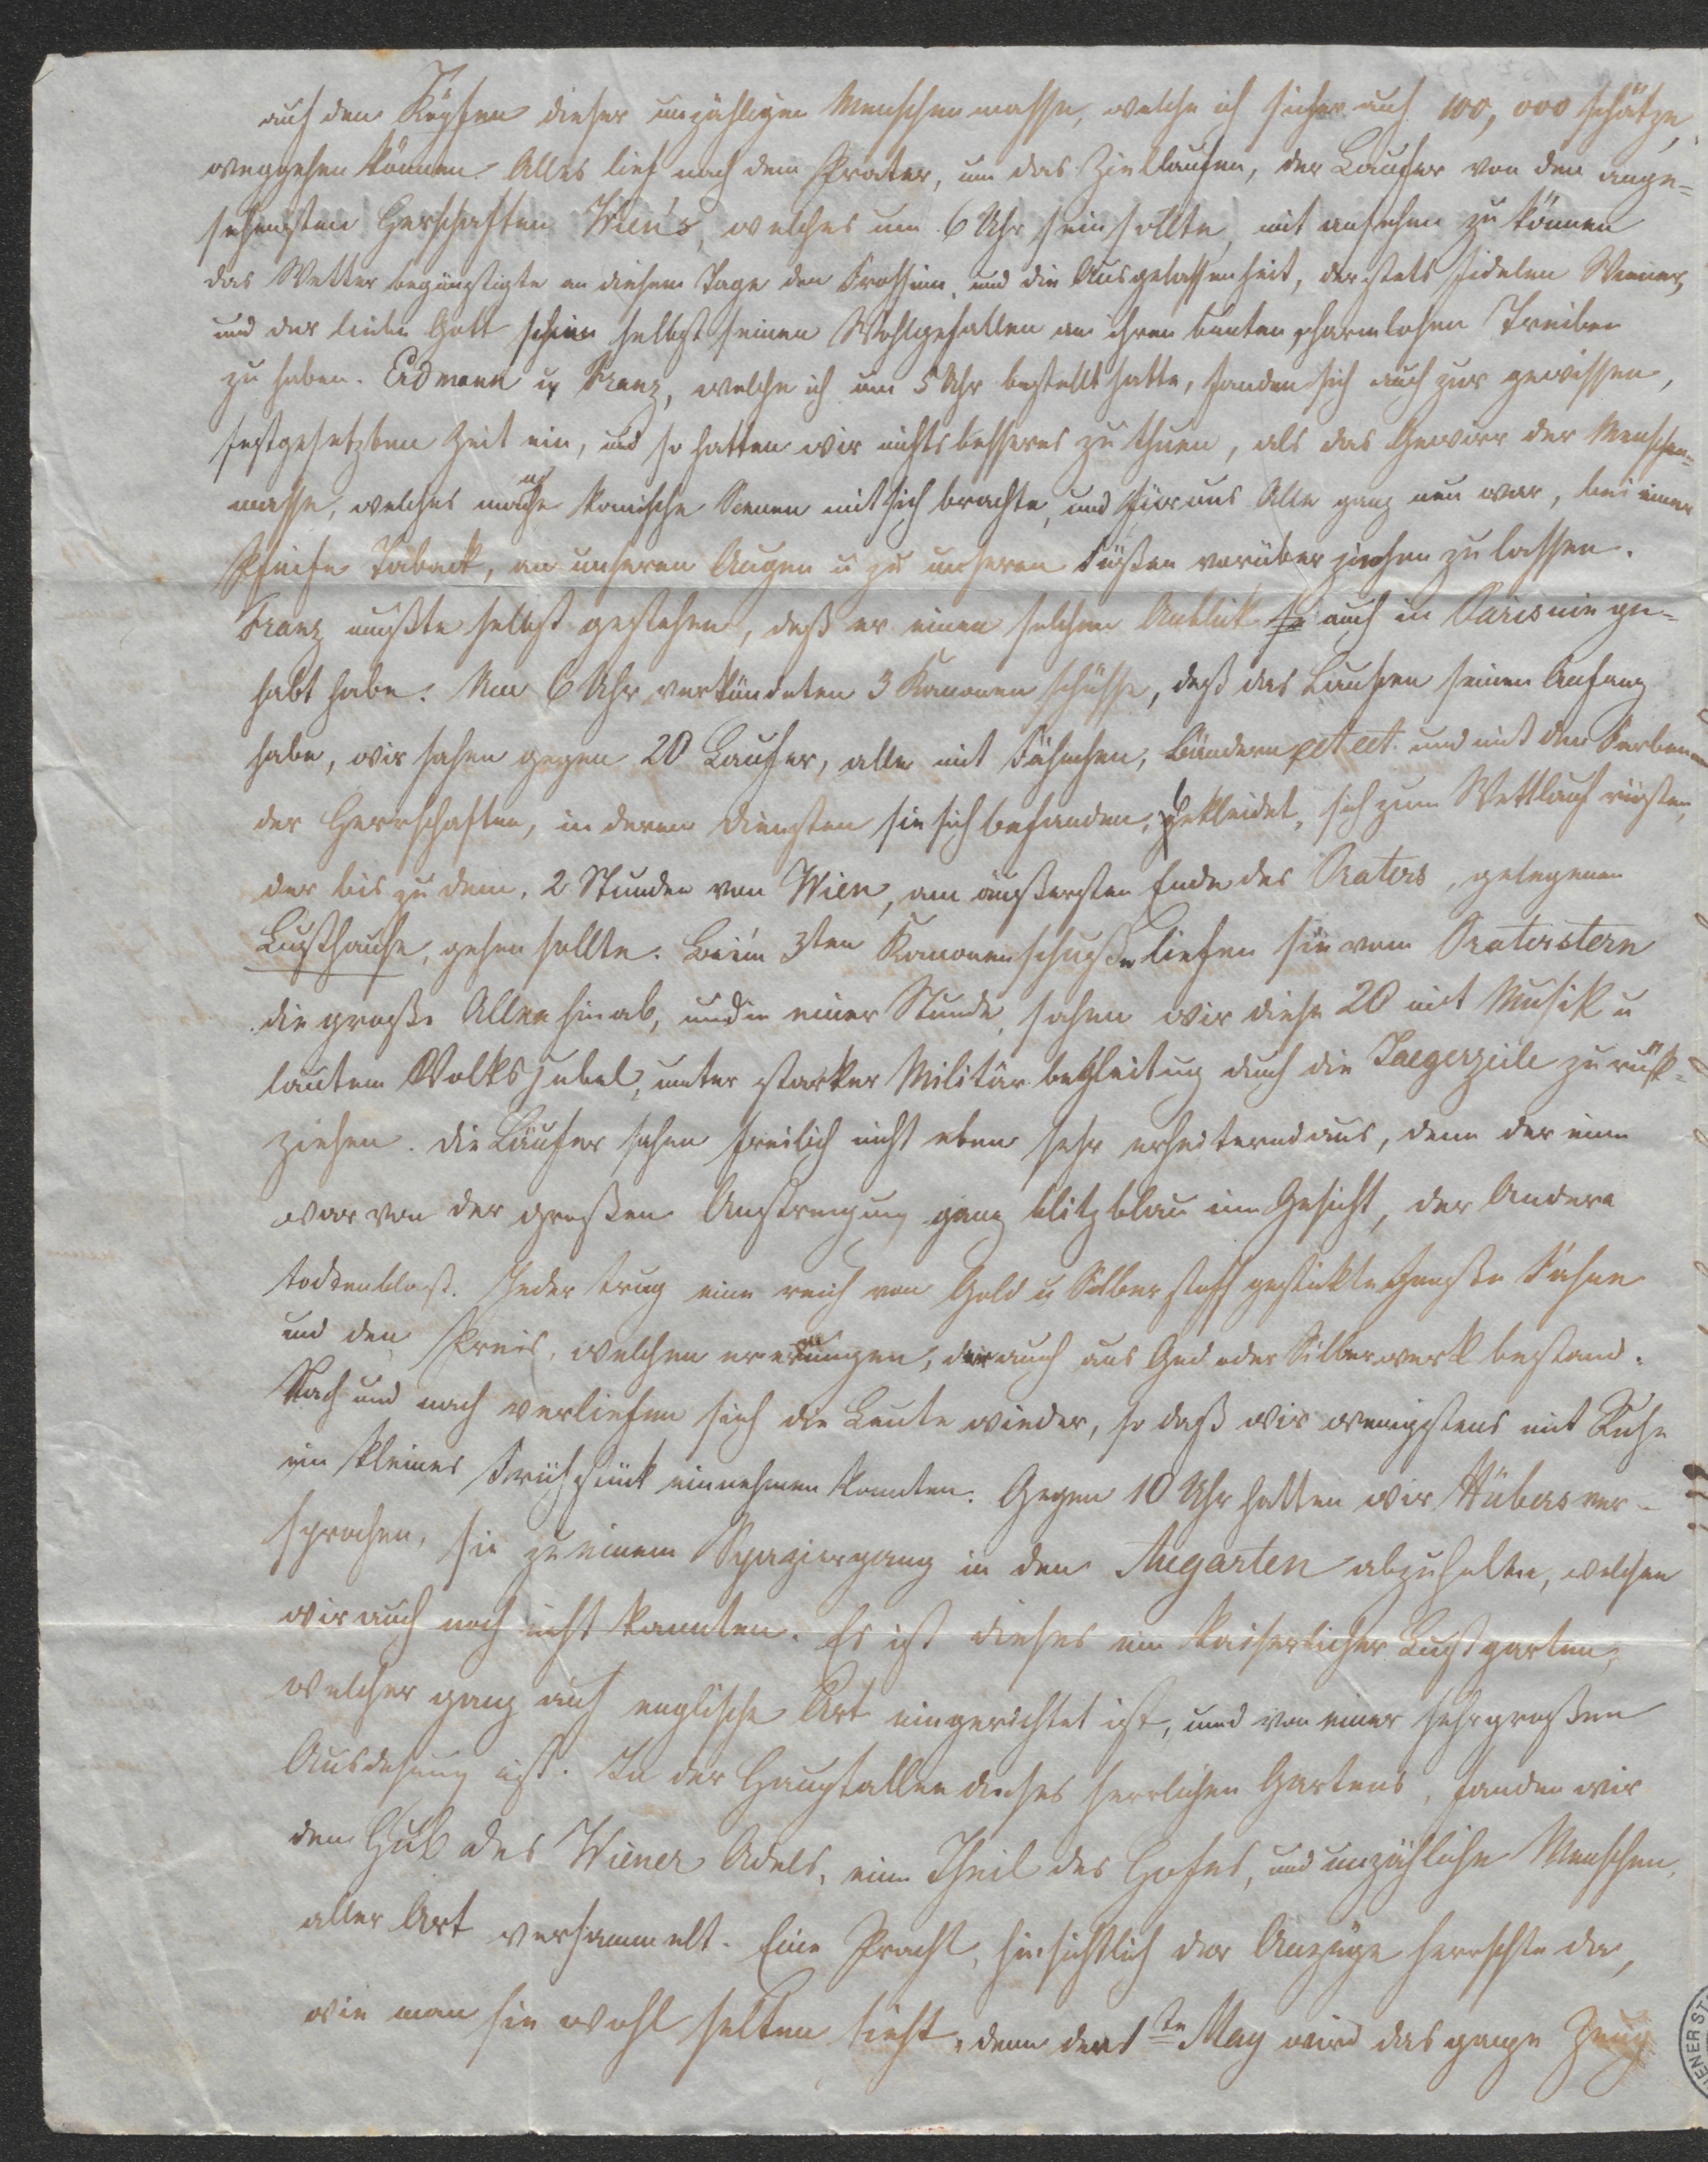 auf den Köpfen dieser unzähligen Menschenmasse, welche ich sicher auf 100,000 schätze,
weggehen können. Alles lief nach dem Prater, um das Ziellaufen, der Laufer von den ange=
sehensten Herschaften Wien's, welches um 6 Uhr sein sollte, mit ansehen zu können
das Wetter begünstigte an diesem Tage den Frohsinn, und die Ausgelassenheit, der stets fidelen Wiener,
und der liebe Gott schien selbst seinen Wohlgefallen an ihren bunten, harmlosen Treiben
zu haben. Erdmann u Franz, welche ich um 5 Uhr bestellt hatte, fanden sich auch zur gewissen,
festgesetzten Zeit ein, und so hatten wir nichts besseres zu thuen, als das Gewirr der Menschen=
masse, welches manche komische Scenen mit sich brachte, und für uns Alle ganz neu war, bei einer
Pfeife Taback, an unseren Augen u zu unseren Füßen vorüber ziehen zu lassen.
Franz mußte selbst gestehen, daß er einen solchen Anblick auch in Paris nie ge=
habt habe. Um 6 Uhr verkündeten 3 Kanonenschüsse, daß das Laufen seinen Anfang
habe, wir sahen gegen 20 Laufer, alle mit Fähnchen, Bändern ect ect. und mit den Farben
der Herrschaften, in deren Diensten sie sich befanden, gekleidet, sich zum Wettlauf rüsten,
der bis zu dem, 2 Stunden von Wien, am äußersten Ende des Praters, gelegenen
Lusthause, gehen sollte. Bei'm 3ten Kanonenschuße liefen sie vom Praterstern
die große Allee hinab, und in einer Stunde, sahen wir diese 20 mit Musik u
lautem Volksjubel, unter starker Militär begleitung durch die Jaegerzeile zurük=
ziehen. Die Läufer sahen freilich nicht eben sehr erheiternd aus, denn der eine
war von der großen Anstrengung ganz blitzblau im Gesicht, der Andere
todtenblaß. Jeder trug eine reich von Gold u Silberstoff gestickte große Fahne
und den Preis, welchen er errungen, der auch aus Gold oder Silberwerk bestand.
Nach und nach verliefen sich die Leute wieder, so daß wir wenigstens mit Ruhe
ein kleines Frühstück einnehmen konnten. Gegen 10 Uhr hatten wir Hübers ver=
sprochen, sie zu einem Spaziergang in den Augarten abzuholen, welchen
wir auch noch nicht kannten. Es ist dieses ein kaiserlicher Lustgarten,
welcher ganz auf englische Art eingerichtet ist, und von einer sehr großen
Ausdehung ist. In der Hauptallee dieses herrlichen Gartens, fanden wir
den des Wiener Adels, einen Theil des Hofes, und unzähliche Menschen,
aller Art versammelt. Eine Pracht, hinsichtlich der Anzüge herrschte da,
wie man sie wohl selten sieht, denn den 1ten May wird das ganze Zeug